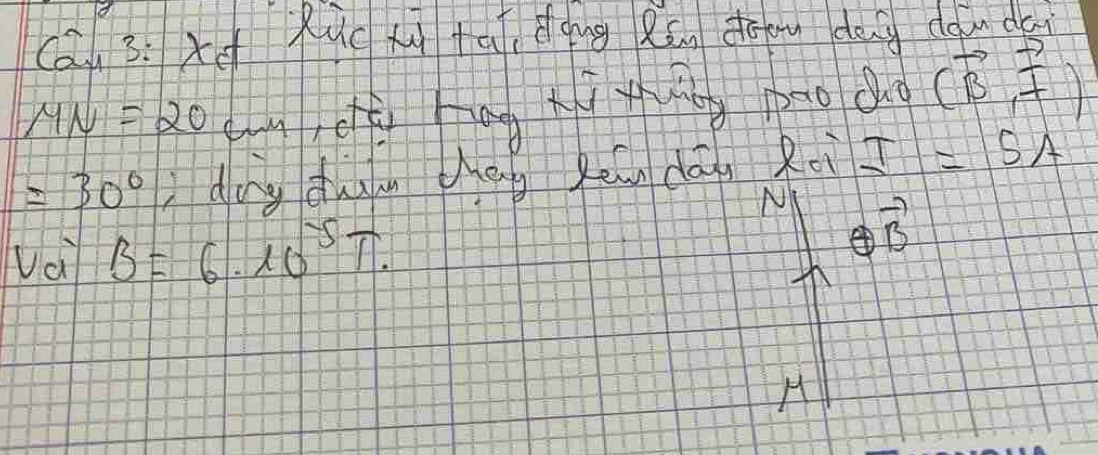 Câu 3: Xđ lực từ tác dụng lên đoạn dây dẫn dài
MN = 20 cm, đặt trong từ trường sao cho (B, I)
= 30°; dòng điện chạy trên dây là I = 5A
Và B = 6.10⁻⁵ T.
N
⊕B
M